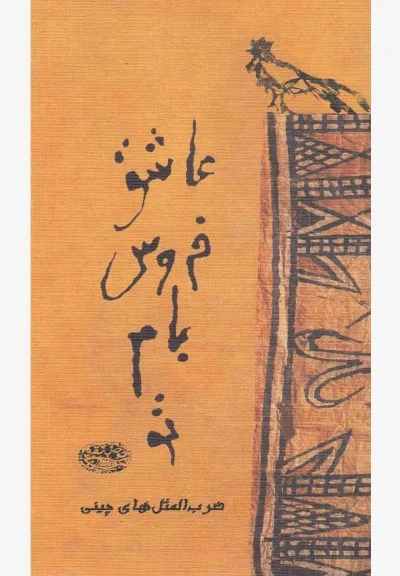 عاشق
خروس
بام
توم
ضرب‌المثل‌های چینی